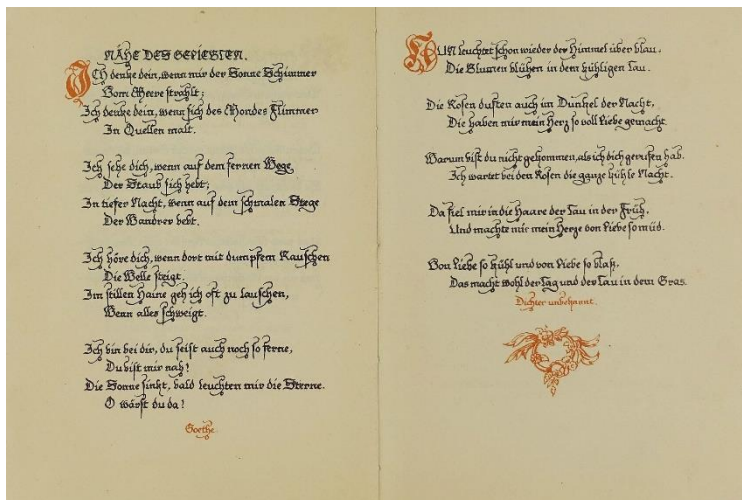 NÄHE DES GELIEBTEN.
ICH denke dein, wenn mir der Sonne Schimmer
Vom Meere strahlt;
Ich denke dein, wenn sich des Mondes Flimmer
In Quellen malt.
Ich sehe dich, wenn auf dem fernen Wege
Der Staub sich hebt;
In tiefer Nacht, wenn auf dem schmalen Stege
Der Wandrer bebt.
Ich höre dich, wenn dort mit dumpfem Rauschen
Die Welle steigt.
Im stillen Haine geh ich oft zu lauschen,
Wenn alles schweigt.
Ich bin bei dir, du seist auch noch so ferne,
Du bist mir nah!
Die Sonne sinkt, bald leuchten mir die Sterne.
O wärst du da!
Goethe.
NUN leuchtet schon wieder der Himmel über blau.
Die Blumen blühen in dem kühligen Tau.
Die Rosen duften auch im Dunkel der Nacht,
Die haben mir mein Herz so voll Liebe gemacht.
Warum bist du nicht gekommen, als ich dich gerufen hab.
Ich wartet bei den Rosen die ganze kühle Nacht.
Da fiel mir in die Haare der Tau in der Früh,
Und machte mir mein Herze von Liebe so müd.
Von Liebe so kühl und von Liebe so blaß,
Das macht wohl der Tag und der Tau in dem Gras.
Dichter unbekannt.